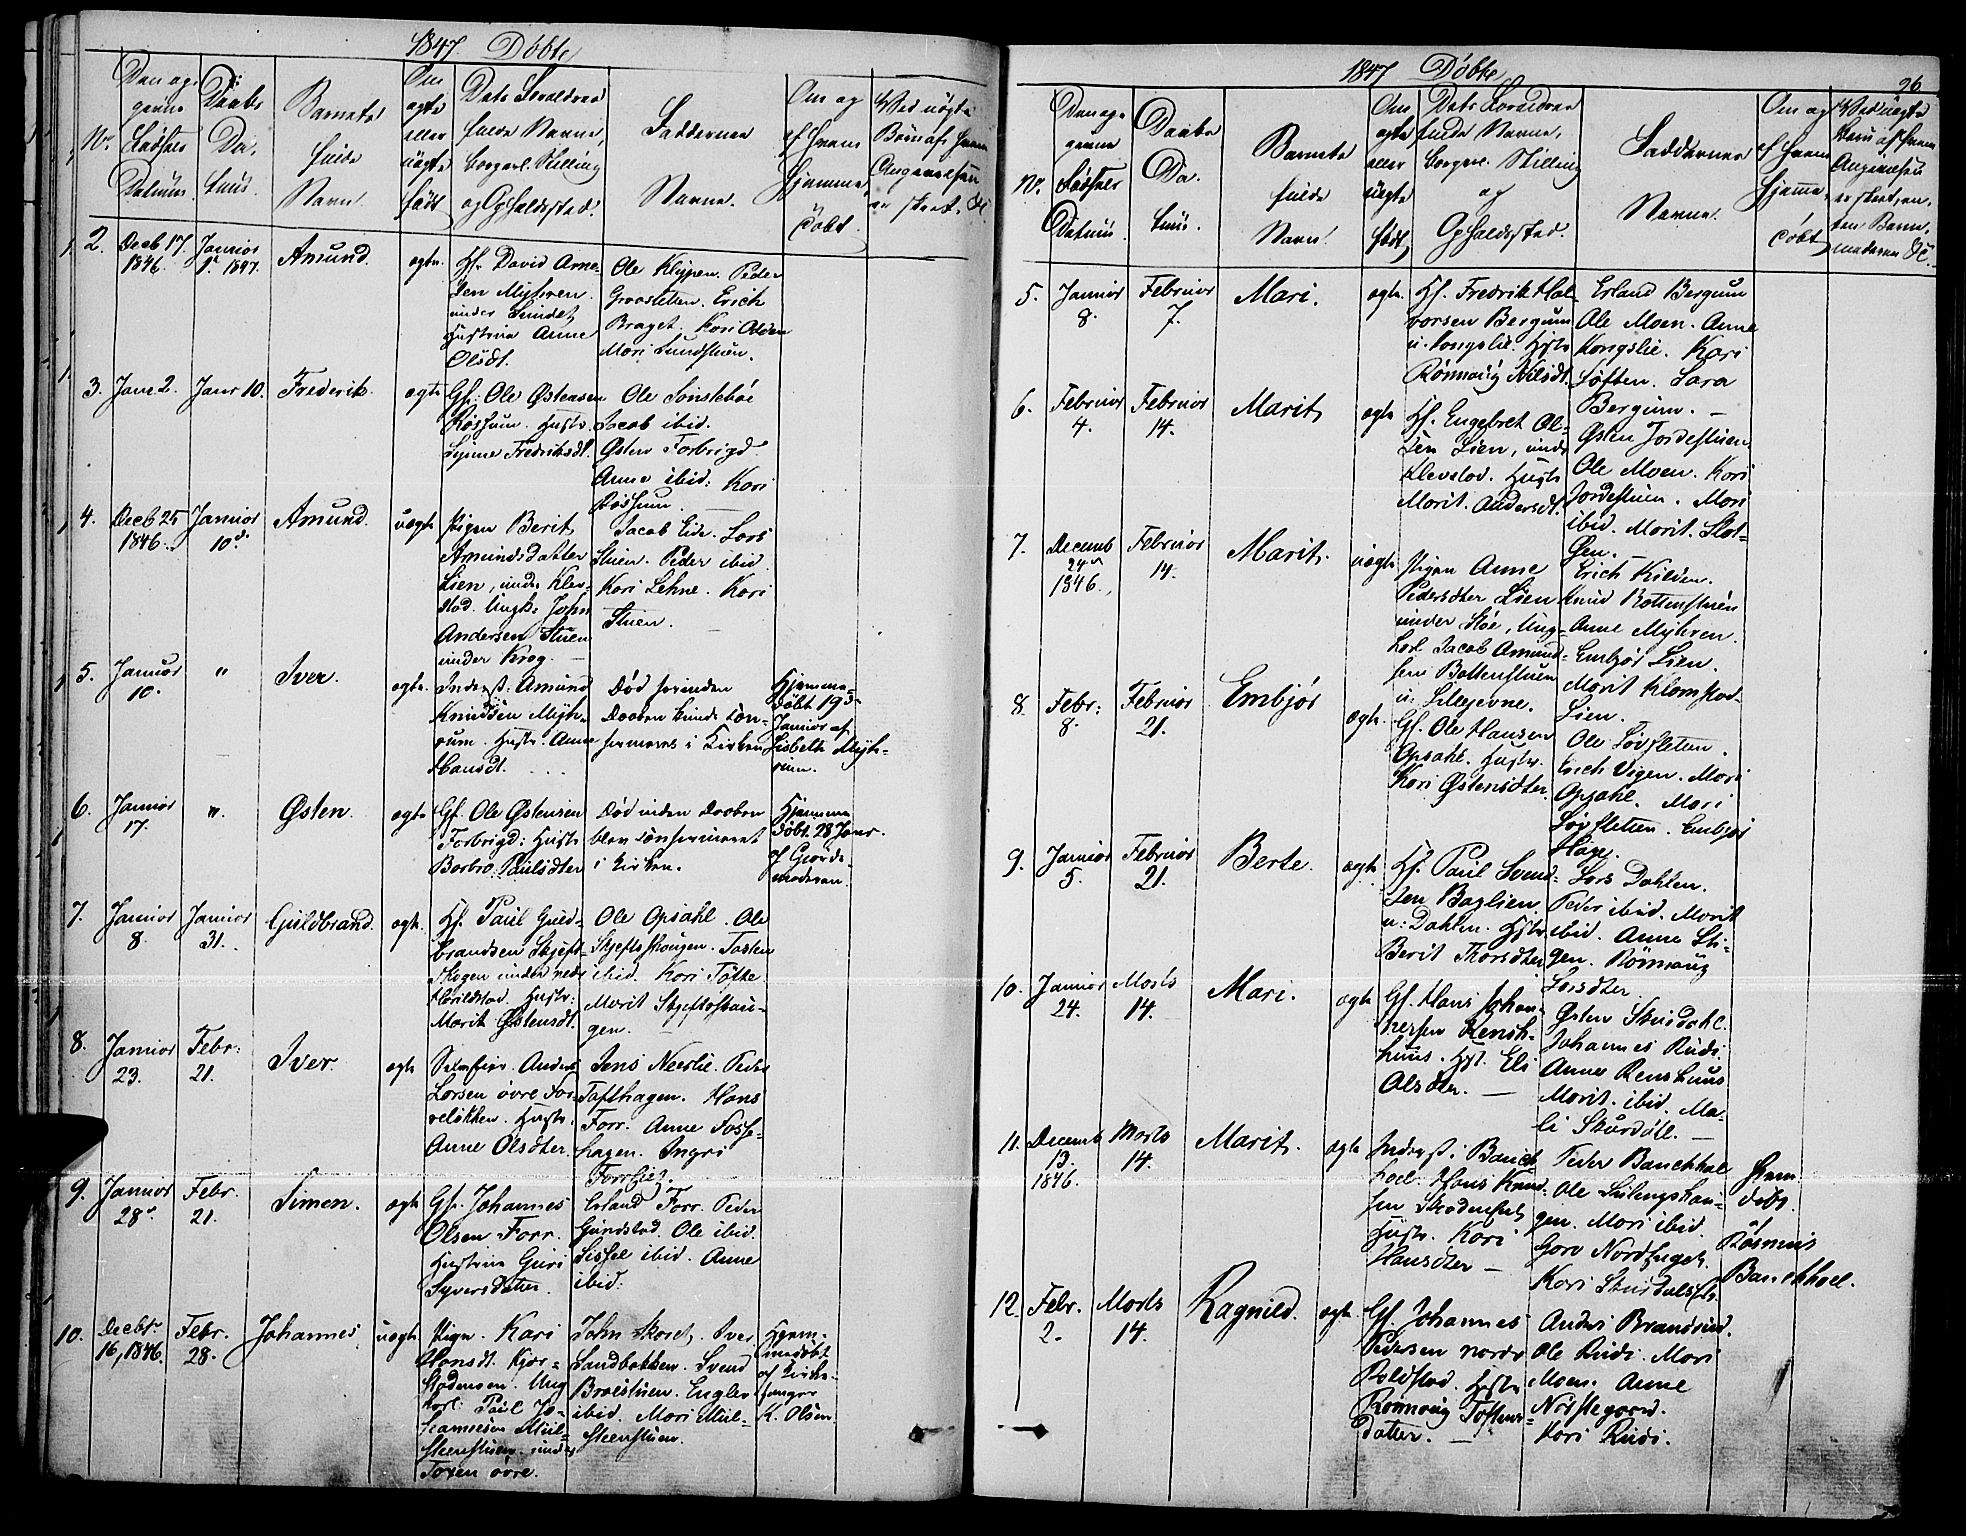 1847 Døbte
No.
Den op-
givne
Fødsels
Datum
Daabs
Da-
tum.
Barnets
fulde
Navn.
Om
ægte
eller
uægte
født
Dets Forældres
fulde Navne,
borgerl. Stilling
og Opholdssted.
Faddernes
Navne.
Om og
af hvem
hjemme
døbt.
Ved uægte
Børn af hvem
Angivelsen
er skeet, &c
2. Decb 17. 1846. Januar 1. 1847. Amund. ægte.
Hf. David Arne-
sen Myhren.
under Sundet,
Hustrue Anne
Olsdt.
Ole Klypen. Peder
Graasletten. Erich
Braget. Kari
Mari Sundstuen.
3. Janr 2. Janr 10. Frederik. ægte
Gf. Ole Østensen
Røssum. Hustr.
Synne Fredriksdt.
Ole Sønsteböe
Jacob ibid.
Østen Forbrigd.
Anne ibid: Kari
Røssum.
4. Decb 25 1846. Januar 10. Amund. uægte
Pigen Berit
Amundsdatter
Lien, under Klev-
stad. Ungk. John
Andersen Stuen
under Krog.
Jacob Eide. Lars
Stuen. Peder ibid
Kari Lehne. Kari
Stuen.
5. Januar 10. " Iver. ægte.
Inderst: Amund
Knudsen Myh-
rum. Hustr. Anne
Hansdt.
Død forinden
Daaben kunde con-
firmeres i Kirken
Hjemme-
døbt 19
Januar af
Lisbeth Myh-
rum.
6. Januar 17. " Østen. ægte
Gf. Ole Østensen
Forbrigd: Hustr
Barbro Paulsdter
Død inden Daaben
blev confirmeret
i Kirken.
Hjemme
døbt 28 Janr.
af Giorde-
moderen.
7. Januar 8. Januar 31. Guldbrand. ægte.
Hf. Paul Guld-
brandsen Skjefte-
skogen under nedr
Harildstad. Hustr:
Marit Østensdt.
Ole Opsahl. Ole
Skjefteskougen. Tosten
ibid. Kari Tofte
Marit Skjefteskou-
gen.
8. Januar 23. Febr: 21. Iver. ægte
Selveier Anders
Larsen øvre For-
veløkken. Hustr.
Anne Olsdter.
Jens Neerlie. Peder
Tofthagen. Hans
Forr. Anne Tofte-
hagen. Ingri
9. Januar 28. Febr. 21. Simen. ægte
Gf. Johannes
Olsen Forr.
Hustrue Guri
Syversdatter.
Erland Forr. Peder
Gundstad. Ole ibid.
Sissel ibid. Anne
ibid.
10. Decbr. 16, 1846. Febr. 28. Johannes. uægte
Pigen. Kari
Hansdt. Kjør-
stadmoen. Ung
karl. Paul Jo-
hannesen Muul-
steenstuen. under
Toxen øvre.
John Skoret. Iver
Sandbakken. Svend
Braestuen. Engler
ibid. Mari Muul-
steenstuen.
Hjem-
medøbt
af Kirke-
sanger
K. Olsen
1847 Døbte
26
No.
Den op-
givne
Fødsels
Datum
Daabs
Da-
tum.
Barnets
fulde
Navn.
Om
ægte
eller
uægte
født,
Dets Forældres
fulde Navne,
borgerl. Stilling
og
Opholdssted.
Faddernes
Navne.
Om og
af hvem
hjemme
døbt
Ved uægte
Børn af hvem
Angivelsen
er skeet, en-
ten Barne-
moderen &c.
5. Januar 8. Februar 7. Mari. ægte.
Hf. Fredrik Hal-
vorsen Bergum
u. Kongslie. Hstr
Rønnaug Nilsdt.
Erland Bergum
Ole Moen. Anne
Kongslie. Kari
Løften. Lara
Bergum.
6. Februar 4. Februar 14. Marit, ægte
Hf. Engebret Ol-
sen Lien, under
Klevstad. Hustr
Marit. Andersdt.
Østen Jordestuen
Ole Moen. Kari
Jordestuen. Mari
ibid. Marit. Slot-
7. Decemb 24 1846. Februar 14. Marit. uægte
Pigen Anne
Pedersdter Lien
under Støe, Ung-
karl Jacob Amund-
sen Bottenstuen
u. Lillejevne.
Erich Kilden.
Knud Bottenstuen
Anne Myhren.
Embjør Lien.
Marit Klomstad-
Lien.
8. Febr: 8. Februar 21. Embjør ægte.
Gf. Ole Hansen
Opsahl. Hustr.
Kari Østensdter.
Ole Løvsletten.
Erich Vigen. Mari
Opsahl. Mari
Løvsletten. Embjør
Hage.
9. Januar 5. Februar 21. Berte. ægte
Hf. Paul Svend-
sen Baglien
u. Dahlen. Hstr
Berit Thorsdter
Lars Dahlen.
Peder ibid. Marit
ibid. Anne Sti-
gen. Rønnaug
Larsdter.
10. Januar 24. Marts 14. Mari. ægte
Gf. Hans Johan-
nessen Rensh-
huus. Hst. Eli
Olsdter.
Østen Skurdahl.
Johannes Rudi
Anne Renshuus
Marit. ibid. Ma-
li Skurdahl.
11. Decemb 13 1846. Marts 14. Marit. ægte
Inderst i Bauck
hoel. Hans Knud-
sen Skodenset
Hustr. Kari
Hansdter
Peder Bauckhoel
Ole
gen. Mari ibid.
Goro Nordhuget.
Kari
Hjem
døbt.
af
Rasmus
Bauckhoel.
12. Febr. 2. Marts 14. Ragnild. ægte.
Gf. Johannes
Pedersen nordr
Koldstad. Hustr
Rønnoug Tosten-
datter.
Anders Brandrud.
Ole Rudi. Mari
Moen. Anne
Nørstegaard.
Kari Rudi.